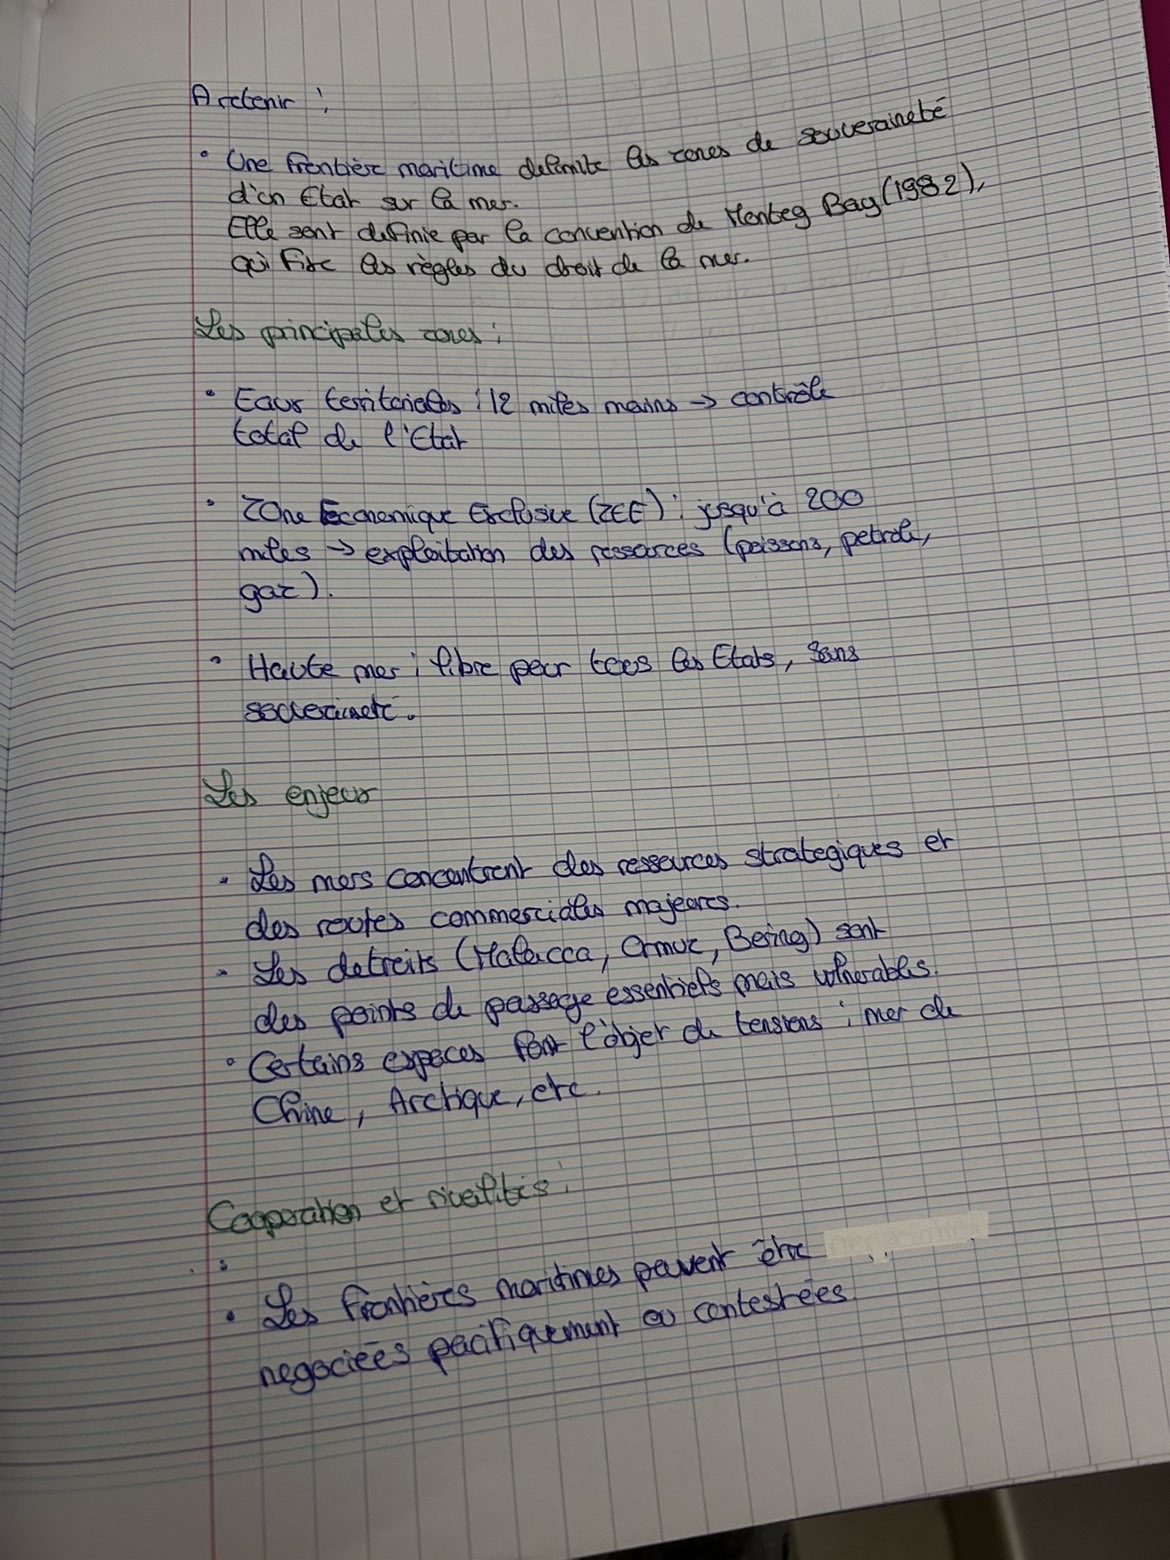 A retenir :
• Une frontière maritime delimite les zones de souveraineté
d'un Etat sur la mer.
Elle sont definie par la convention de Menteg Bay (1982),
qui fixe les règles du droit de la mer.
Les principales zones :
• Eaux territoriales : 12 miles marins → contrôle
total de l'Etat
• ZOne Economique Exclusive (ZEE) : jusqu'à 200
miles → exploitation des ressources (poissons, petrole,
gaz).
• Haute mer : libre pour tous les Etats, sans
souveraineté.
Les enjeux
• Les mers concentrent des ressources strategiques et
des routes commerciales majeures.
• Les detroits (Malacca, Ormuz, Bering) sont
des points de passage essentiels mais vulnerables.
• Certains espaces font l'objet de tensions : mer de
Chine, Arctique, etc.
Cooperation et rivalités :
• Les frontières maritimes peuvent être
negociées pacifiquement ou contestées.